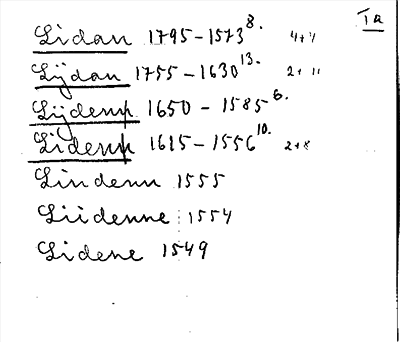 Ia
Lidan 1795-1573 8. 4+4
Lijdan 1755-1630 13. 2+11
Lijdenn 1650-1585 6.
Lidenn 1615-1556 10. 2+8
Lindenn 1555
Liidenne 1554
Lidene 1549